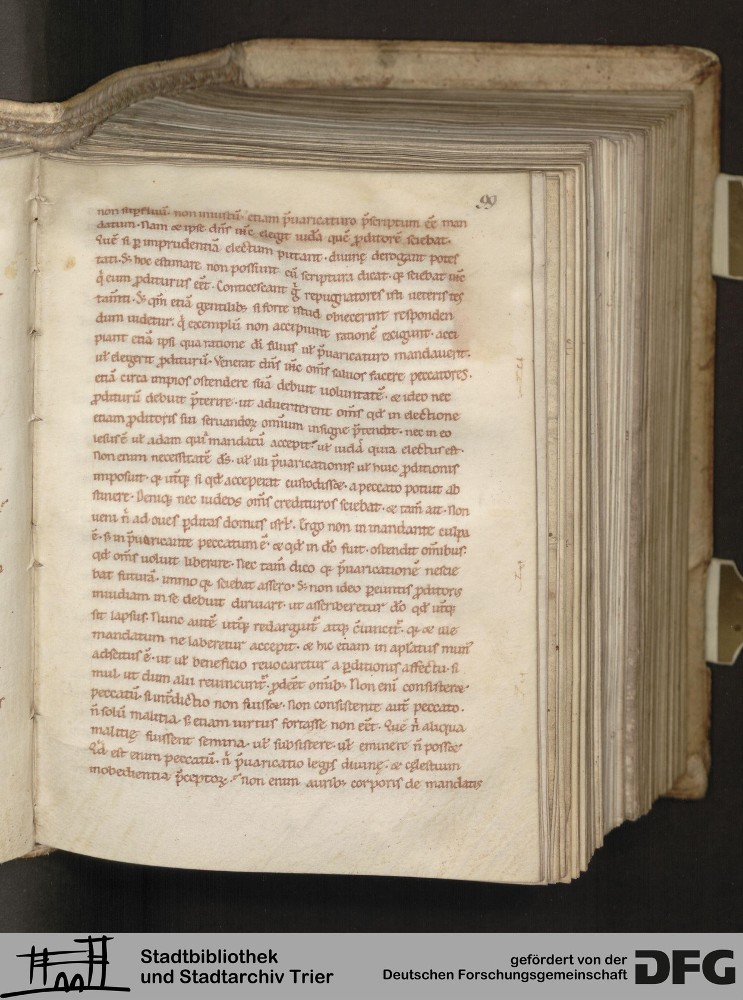 99
non supfluũ· non iniustũ· etiam p̃uaricaturo p̃scriptum ẽẽ man
datum· Nam & ipse dñs ihc̃ elegit iudã quẽ pditorẽ sciebat·
Quẽ si p imprudentiã electum putant· diuinę derogant potes
tati· S; hoc estimare non possunt cũ scriptura dicat· qꝫ sciebat ihc̃
qͥ eum pditurus eẽt· Conticescant g̊ repugnatores isti ueteris tes
tam̃ti· S; qm̃ etiã gentilibꝫ si forte istud obiecerint responden
dum uidetur· qͥ exemplũ non accipiunt rationẽ exigunt· acci
piant etiã ipsi qua ratione dĩ filius uł p̃uaricaturo mandauerit·
uł elegerit pditurũ· Venerat dñs ihc̃ om̃s saluos facere peccatores·
etiã circa impios ostendere suã debuit uoluntatẽ· & ideo nec
pditurũ debuit p̃terire· ut aduerterent om̃s qd in electione
etiam pditoris sui seruandoꝝ omnium insigne p̃tendit· nec in eo
lesus ẽ uł adam quia mandatũ accepit· uł iudã quia electus est·
Non enim necessitatẽ ds̃· uł illi p̃uaricationis uł huic pditionis
imposuit· qꝫ utqꝫ si qd acceperat custodisset· a peccato potuit ab
stinere· Deniqꝫ nec iudeos om̃s credituros sciebat· & tam̃ ait· Non
ueni ñ ad oues pditas domus isrł· Ergo non in mandante culpa
ẽ· s; in p̃uaricante peccatum ẽ· & qd in dõ fuit· ostendit om̃ibus·
qd om̃s uoluit liberare· Nec tam̃ dico qꝫ p̃uaricationẽ nescie
bat futurã· immo qꝫ sciebat assero· S; non ideo peuntis pditoris
inuidiam in se debuit deriuare· ut asscriberetur dõ qd utqꝫ
sit lapsus· Nunc autẽ utqꝫ redarguit᷑ atqꝫ c̃uincit᷑· qꝫ & ille
mandatum ne laberetur accepit· & hic etiam in aplatus mun᷑
adscitus ẽ· ut uł beneficio reuocaretur a pditionis affectu· si
mul ut dum alii reuincunt᷑· pdẽẽt om̃ibꝫ· Non eni consisteret
peccatũ· si int̃dictio non fuisset· Non consistente aut̃ peccato·
ñ solũ malitia· s; etiam uirtus fortasse non eẽt· Quẽ ñ aliqua
malitię fuissent semina· uł subsistere· uł eminere ñ posset·
Qd est enim peccatũ· ñ p̃uaricatio legis diuinę· & cęlestium
inobedientia p̃ceptoꝝ· Non enim auribꝫ corporis de mandatis
Stadtbibliothek
und Stadtarchiv Trier
gefördert von der
Deutschen Forschungsgemeinschaft
DFG